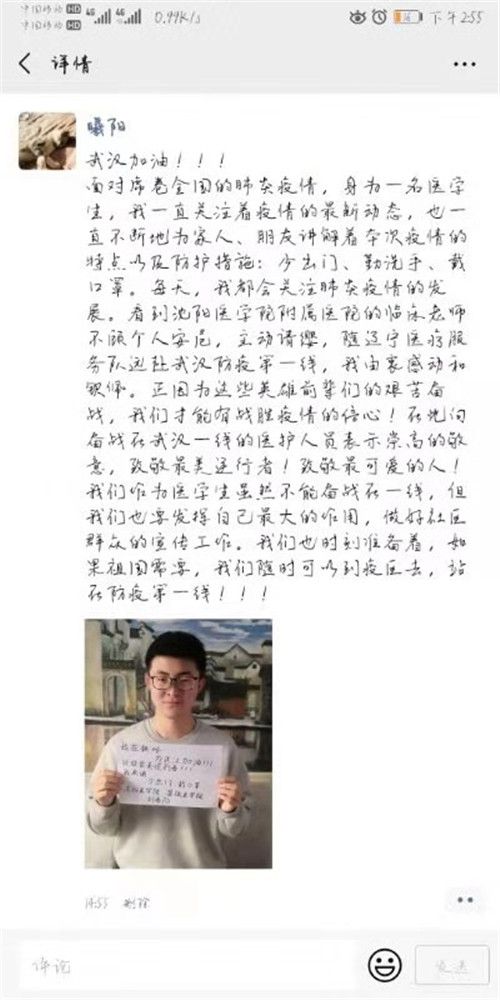 中国移动 HD 4G 4G 0.99K/s 下午2:55
中国移动 HD
详情
曦阳
武汉加油！！！
面对席卷全国的肺炎疫情，身为一名医学
生，我一直关注着疫情的最新动态，也一
直不断地为家人、朋友讲解着本次疫情的
特点以及防护措施：少出门、勤洗手、戴
口罩。每天，我都会关注肺炎疫情的发
展。看到沈阳医学院附属医院的临床老师
不顾个人安危，主动请缨，随辽宁医疗服
务队远赴武汉防疫第一线，我由衷感动和
钦佩。正因为这些英雄前辈们的艰苦奋
战，我们才能有战胜疫情的信心！在此向
奋战在武汉一线的医护人员表示崇高的敬
意，致敬最美逆行者！致敬最可爱的人！
我们作为医学生虽然不能奋战在一线，但
我们也要发挥自己最大的作用，做好社区
群众的宣传工作。我们也时刻准备着，如
果祖国需要，我们随时可以到疫区去，站
在防疫第一线！！！
为武汉加油!!!
14:55 删除
评论
发送